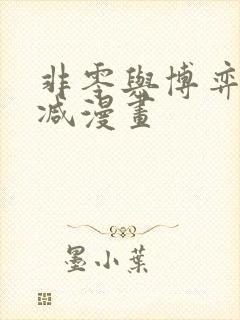 非零與博弈
减漫畫
墨小葉